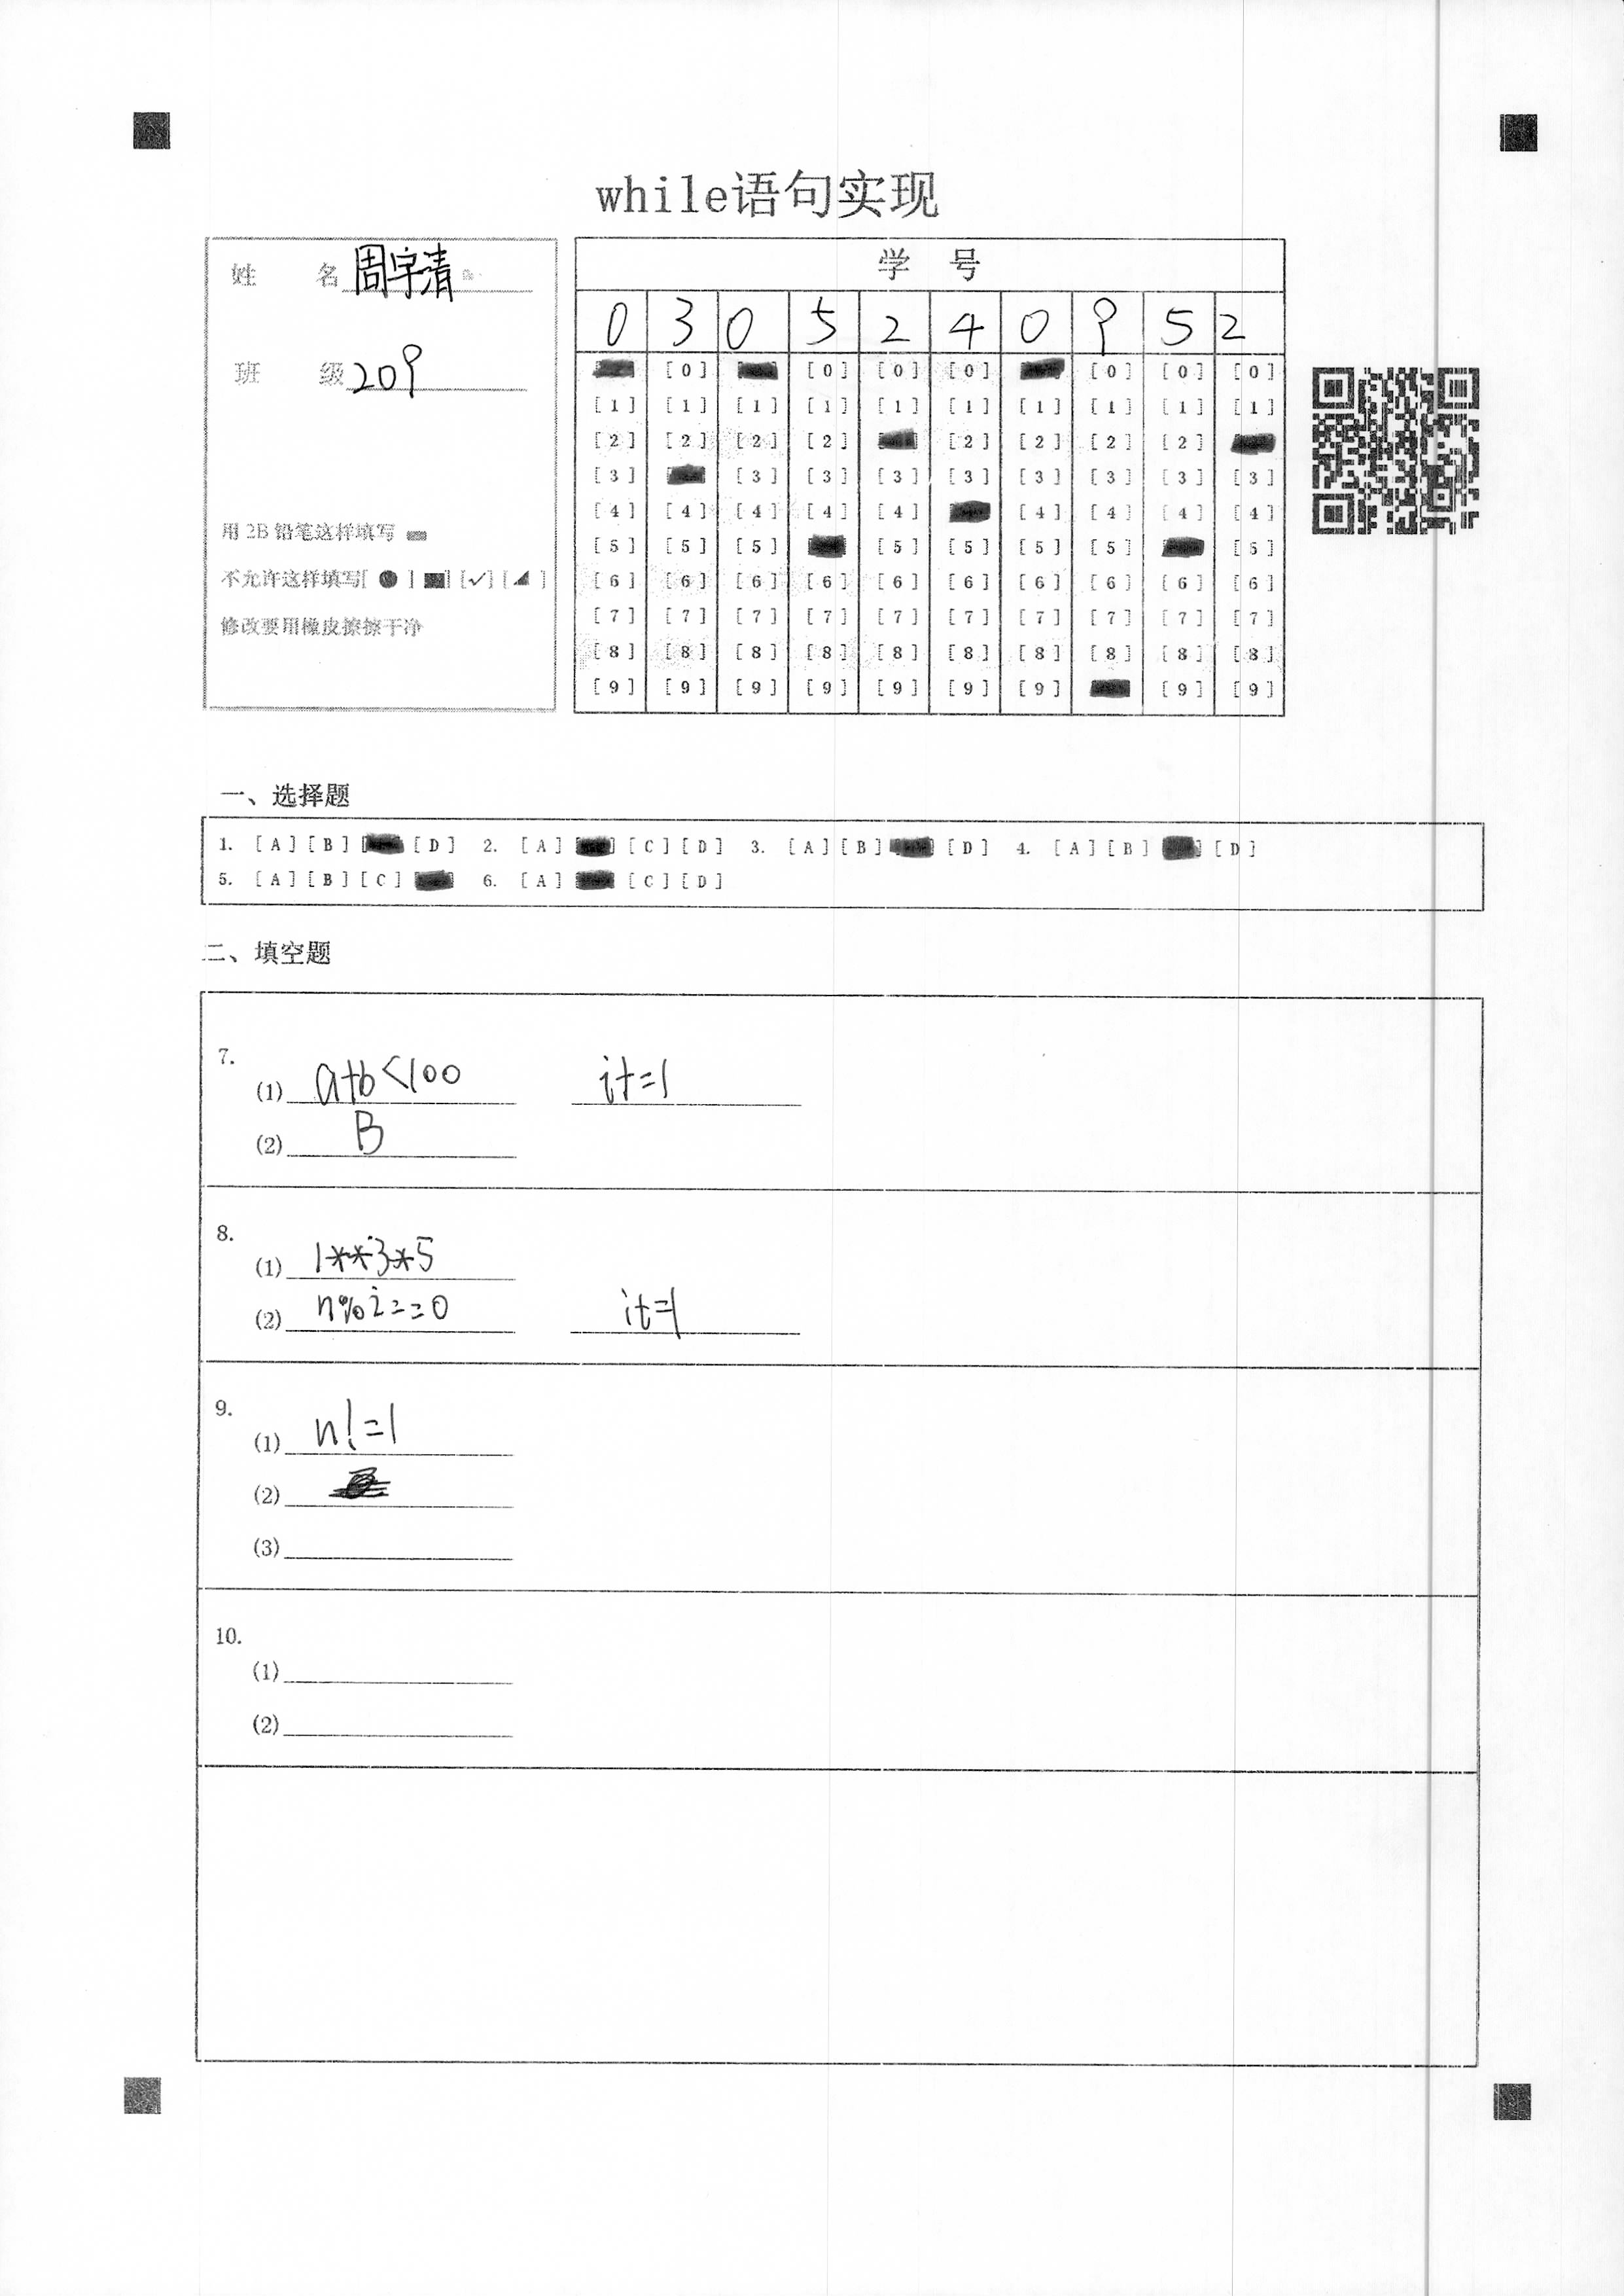 while语句实现
姓 名 周宇清
班 级 209
用 2B 铅笔这样填写
不允许这样填写[ ● ] ■ [✓] [ ]
修改要用橡皮擦擦干净
学 号
0 3 0 5 2 4 0 9 5 2
[0] [0] [0] [0] [0] [0] [0]
[1] [1] [1] [1] [1] [1] [1] [1] [1] [1]
[2] [2] [2] [2] [2] [2] [2] [2]
[3] [3] [3] [3] [3] [3] [3] [3] [3]
[4] [4] [4] [4] [4] [4] [4] [4] [4]
[5] [5] [5] [5] [5] [5] [5] [5]
[6] [6] [6] [6] [6] [6] [6] [6] [6] [6]
[7] [7] [7] [7] [7] [7] [7] [7] [7] [7]
[8] [8] [8] [8] [8] [8] [8] [8] [8] [8]
[9] [9] [9] [9] [9] [9] [9] [9] [9]
一、选择题
1. [A] [B] [D] 2. [A] [C] [D] 3. [A] [B] [D] 4. [A] [B] [D]
5. [A] [B] [C] 6. [A] [C] [D]
二、填空题
7.
(1) a+b<100 i+=1
(2) B
8.
(1) 1**3*5
(2) n%i==0 i+=1
9.
(1) n!=1
(2)
(3)
10.
(1)
(2)